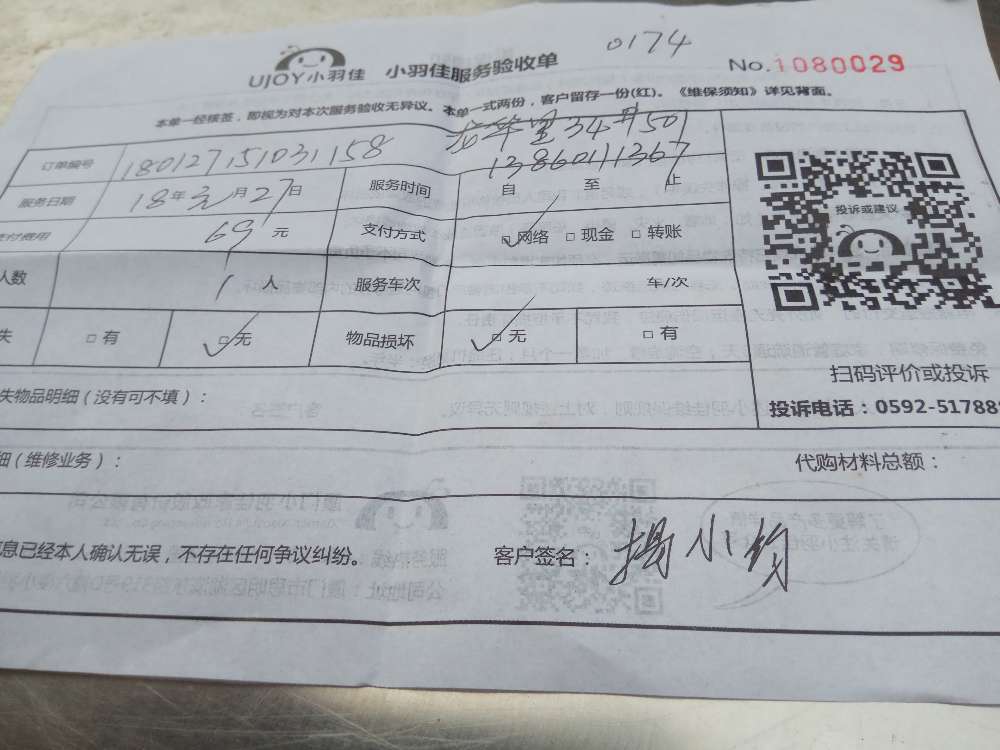 0174
UJOY小羽佳 小羽佳服务验收单 No.1080029
本单一经核签，即视为对本次服务验收无异议。本单一式两份，客户留存一份(红)。《维保须知》详见背面。
龙华里34#501
订单编号 180127151031158 13860111367
服务日期 18年元月27日 服务时间 自 至 止
支付费用 69元 支付方式 □网络 □现金 □转账
人数 1人 服务车次 车/次
失 □有 □无 物品损坏 □无 □有
投诉或建议
扫码评价或投诉
失物品明细（没有可不填）： 投诉电话：0592-517888
细（维修业务）： 代购材料总额：
息已经本人确认无误，不存在任何争议纠纷。 客户签名：